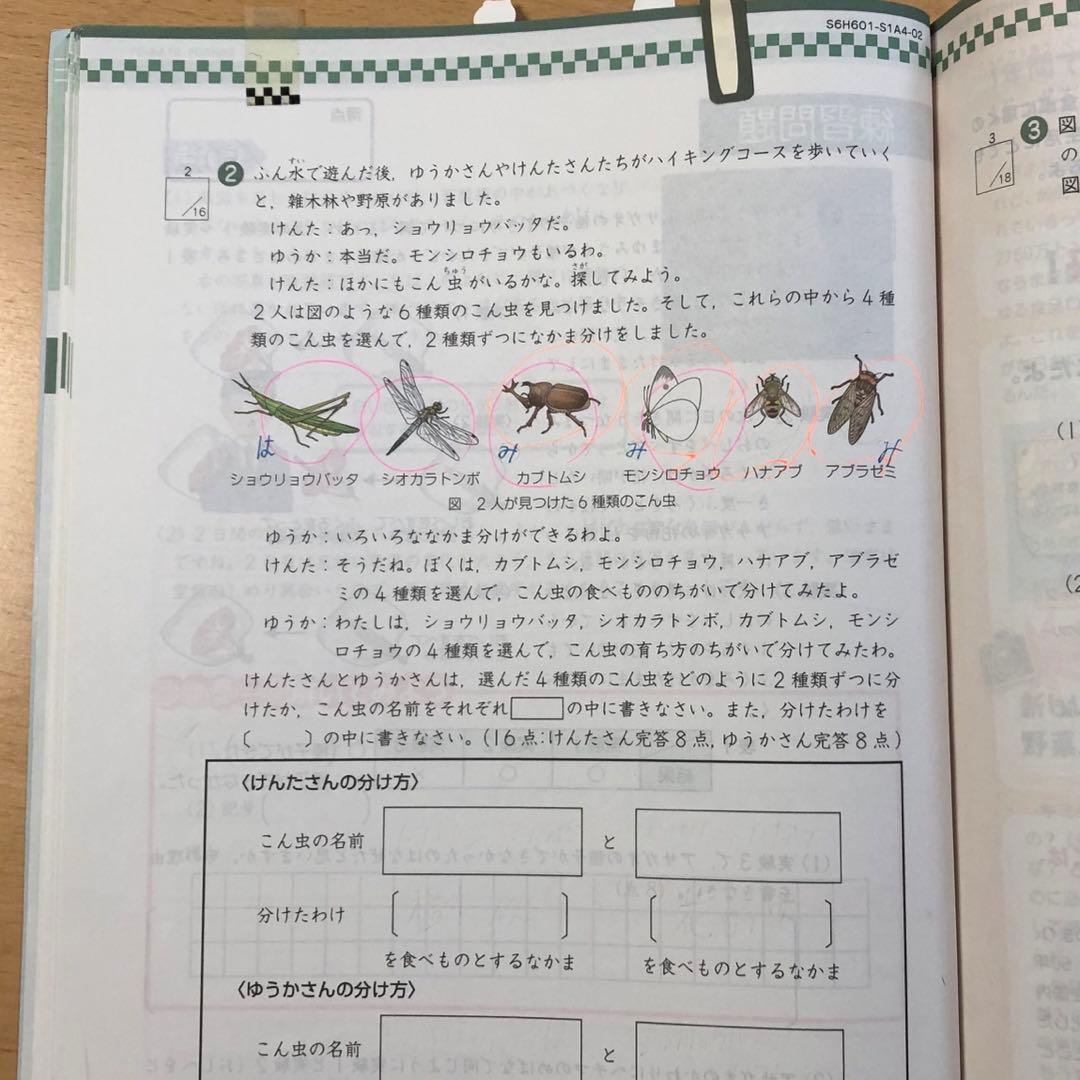 S6H601-S1A4-02
2
/16
❷ ふん水で遊んだ後，ゆうかさんやけんたさんたちがハイキングコースを歩いていく
と，雑木林や野原がありました。
けんた：あっ，ショウリョウバッタだ。
ゆうか：本当だ。モンシロチョウもいるわ。
けんた：ほかにもこん虫がいるかな。探してみよう。
2人は図のような6種類のこん虫を見つけました。そして，これらの中から4種
類のこん虫を選んで，2種類ずつになかま分けをしました。
は み み み
ショウリョウバッタ シオカラトンボ カブトムシ モンシロチョウ ハナアブ アブラゼミ
図 2人が見つけた6種類のこん虫
ゆうか：いろいろななかま分けができるわよ。
けんた：そうだね。ぼくは，カブトムシ，モンシロチョウ，ハナアブ，アブラゼ
ミの4種類を選んで，こん虫の食べもののちがいで分けてみたよ。
ゆうか：わたしは，ショウリョウバッタ，シオカラトンボ，カブトムシ，モンシ
ロチョウの4種類を選んで，こん虫の育ち方のちがいで分けてみたわ。
けんたさんとゆうかさんは，選んだ4種類のこん虫をどのように2種類ずつに分
けたか，こん虫の名前をそれぞれ□の中に書きなさい。また，分けたわけを
〔　〕の中に書きなさい。(16点：けんたさん完答8点，ゆうかさん完答8点)
〈けんたさんの分け方〉
こん虫の名前 と
分けたわけ
を食べものとするなかま を食べものとするなかま
〈ゆうかさんの分け方〉
こん虫の名前 と
3
/18
❸ 図
の
図
(1)
(2)